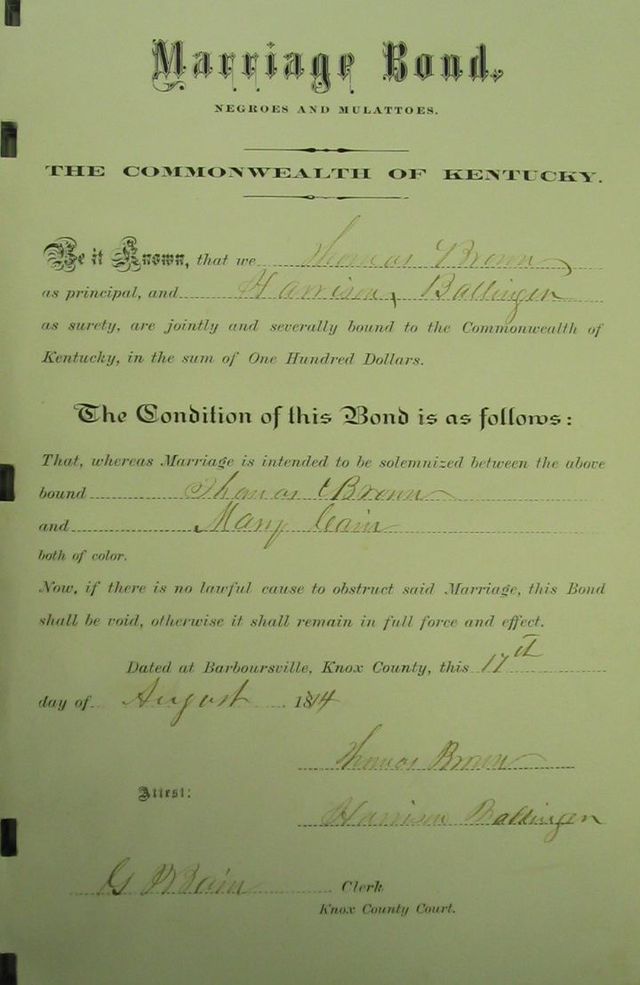 Marriage Bond,
NEGROES AND MULATTOES.
THE COMMONWEALTH OF KENTUCKY.
Be it Known, that we Thomas Brown
as principal, and Harrison Ballinger
as surety, are jointly and severally bound to the Commonwealth of
Kentucky, in the sum of One Hundred Dollars.
The Condition of this Bond is as follows:
That, whereas Marriage is intended to be solemnized between the above
bound Thomas Brown
and Mary Cain
both of color.
Now, if there is no lawful cause to obstruct said Marriage, this Bond
shall be void, otherwise it shall remain in full force and effect.
Dated at Barboursville, Knox County, this 17th
day of August
Thomas Brown
Attest:
Harrison Ballinger
Clerk
Knox County Court.